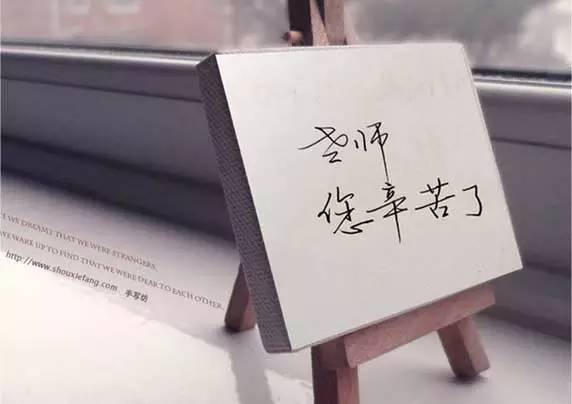 老师
您辛苦了
E WE DREAMT THAT WE WERE STRANGERS.
WE WAKE UP TO FIND THAT WE WERE DEAR TO EACH OTHER.
http://www.shouxiefang.com 手写坊